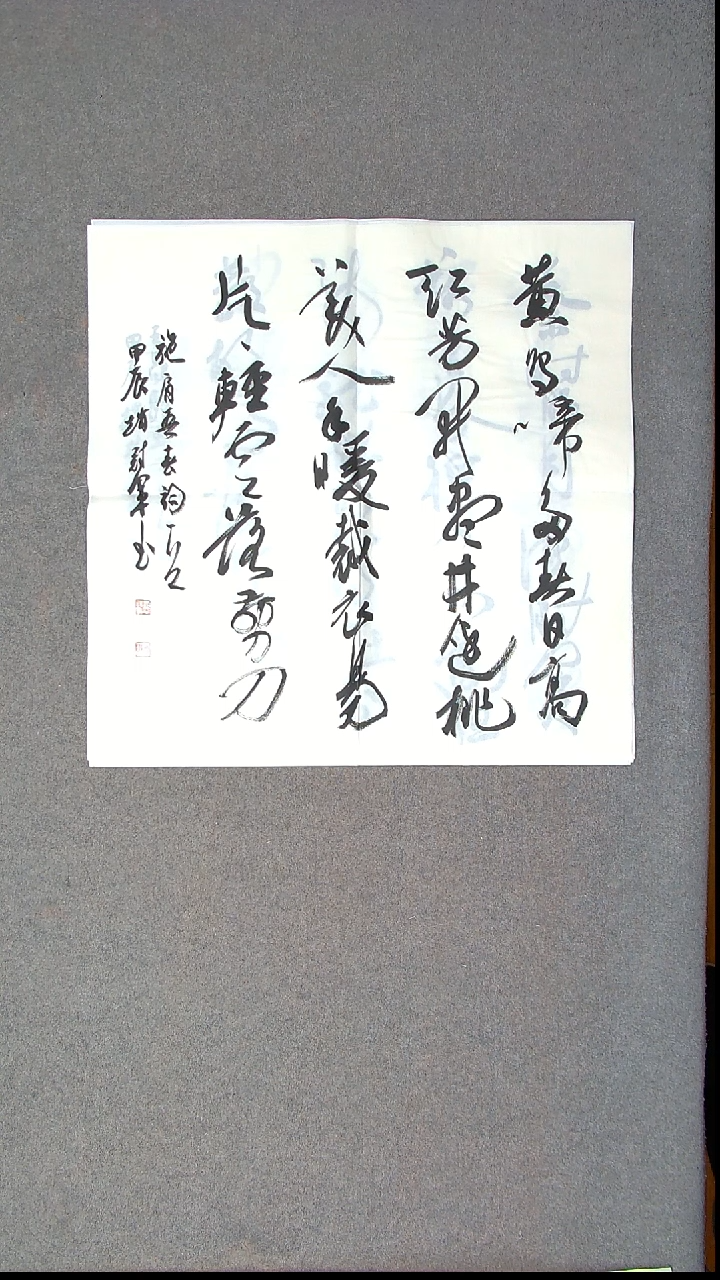 黄鸟啼多春日高
红芳开尽井边桃
美人手暖裁衣易
片片輕雲落剪刀
施肩吾春詞一首
甲辰 軍书